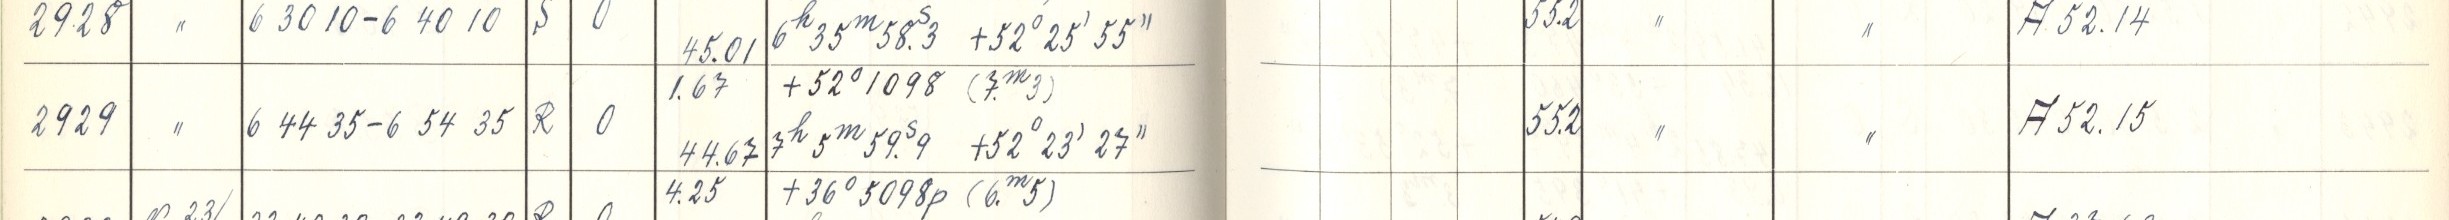 2928 〃 6 30 10-6 40 10 S 0 45.01 6ʰ 35ᵐ 58.ˢ3 +52° 25' 55" 55.2 〃 〃 A 52.14
1.67 +52° 1098 (7.ᵐ3)
2929 〃 6 44 35-6 54 35 R 0 44.67 7ʰ 5ᵐ 59.ˢ9 +52° 23' 27" 55.2 〃 〃 A 52.15
4.25 +36° 5098p (6.ᵐ5)
23/ R 0